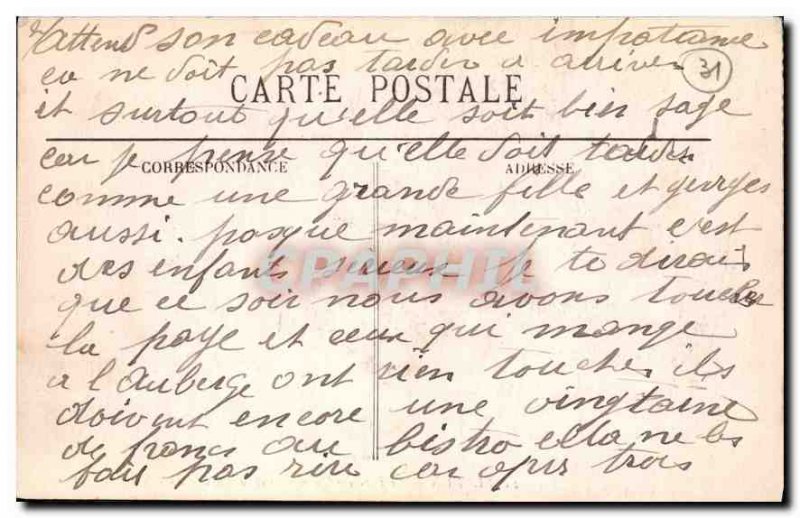 j'attend son cadeau avec impatiance
ca ne doit pas tarder a arriver
31
CARTE POSTALE
et surtout qu'elle soit bien sage
car je pense qu'elle doit
CORRESPONDANCE
ADRESSE
comme une grande fille et georges
aussi. pasque maintenant c'est
des enfants serieux Je te dirais
CPAPHIL
que ce soir nous avons toucher
la paye et ceux qui mange
a l'auberge ont rien toucher ils
doivent encore une vingtaine
de francs au bistro cella ne les
fait pas rire car apres trois